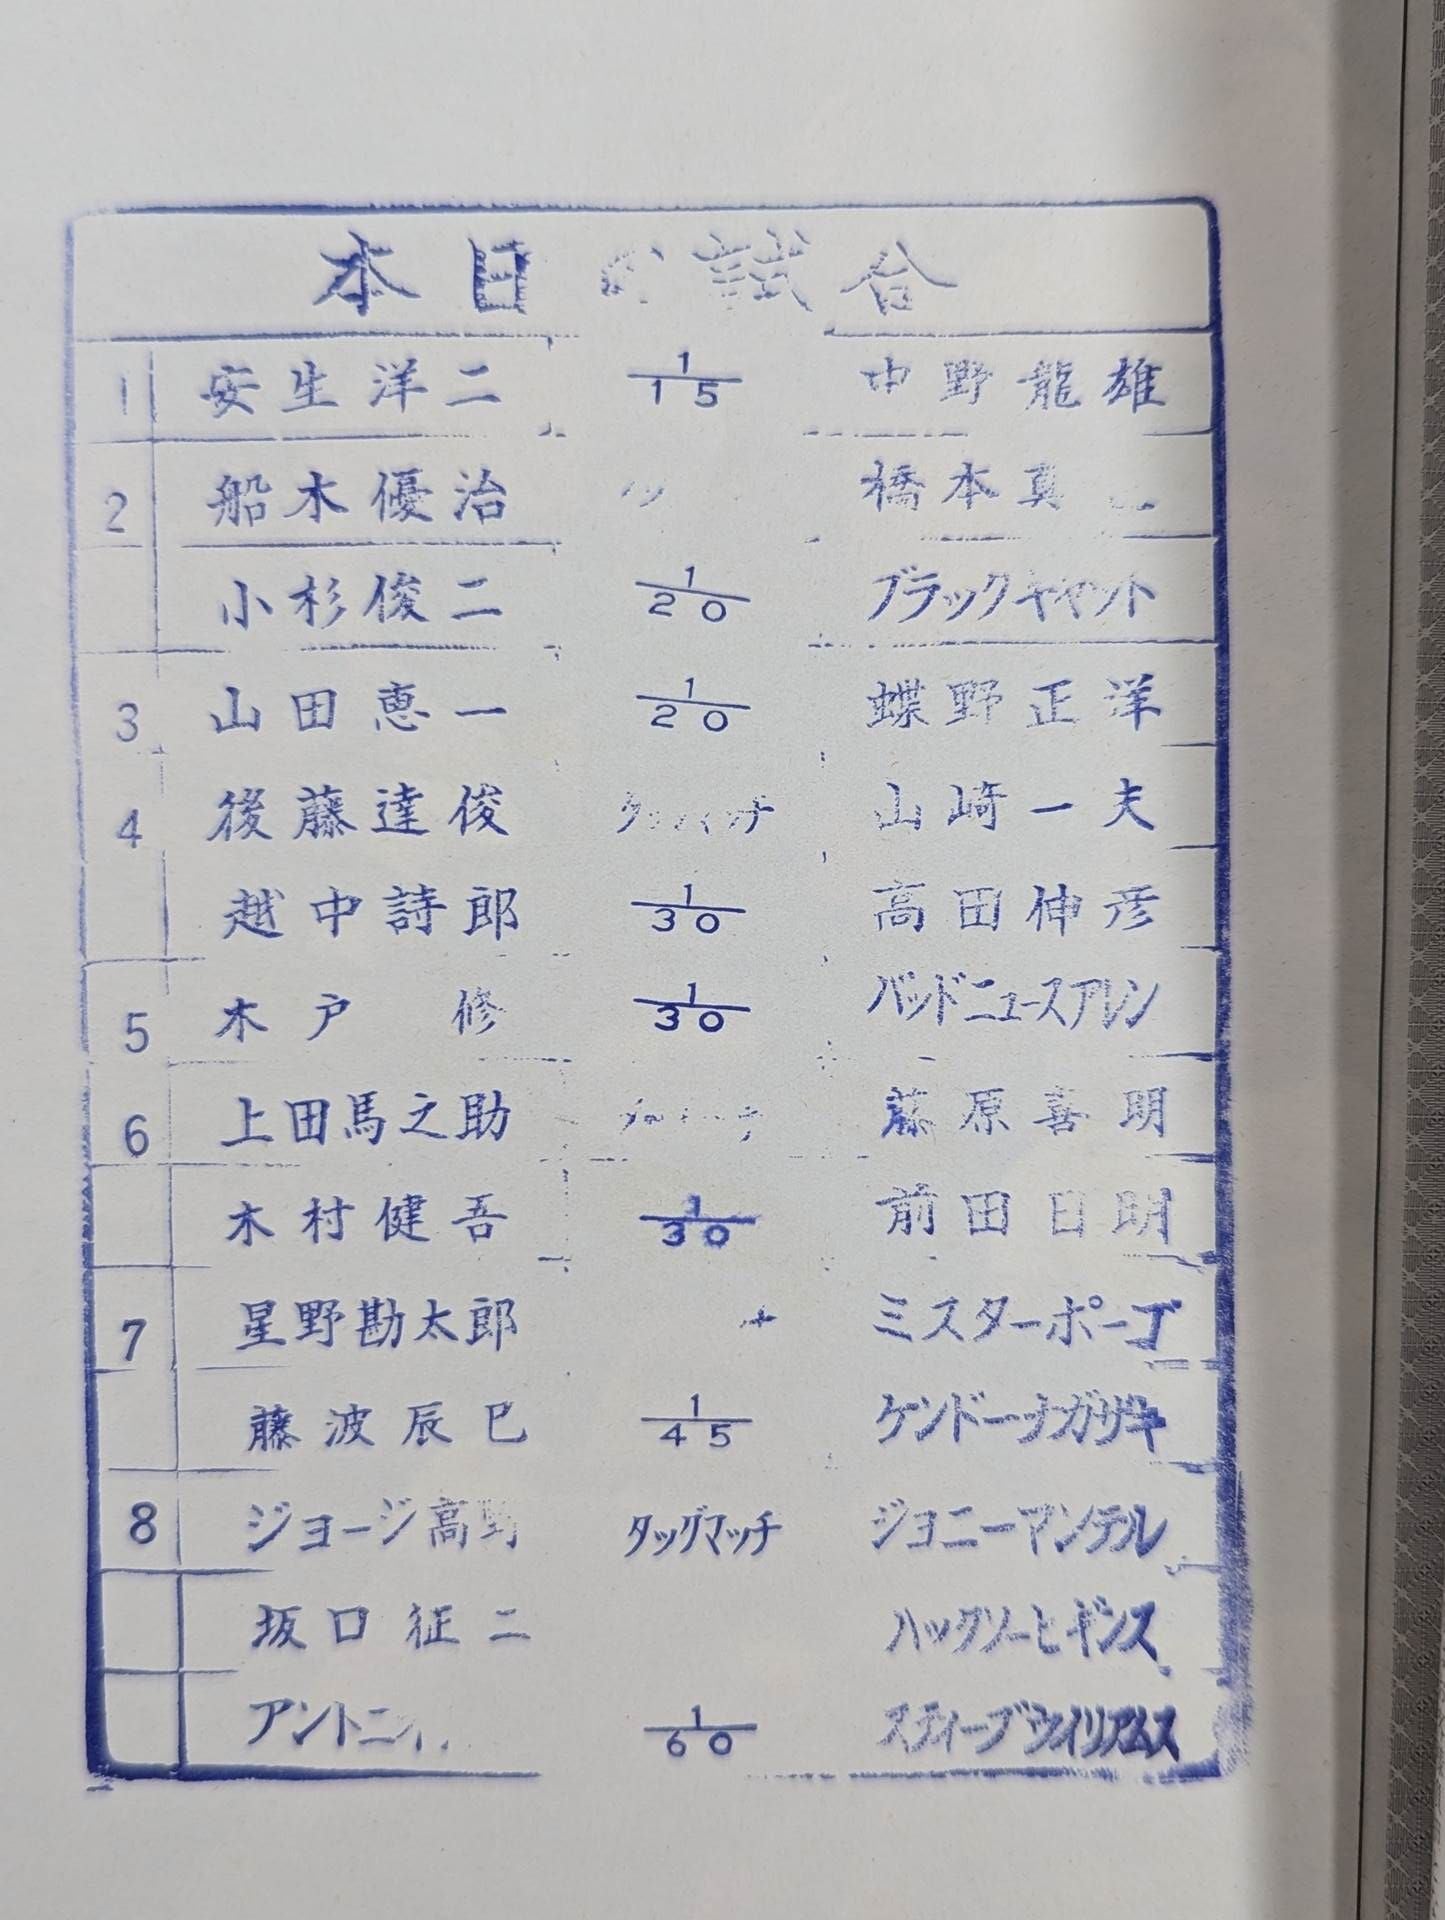 本日の試合
1 安生洋二 1/15 中野龍雄
2 船木優治 橋本真
小杉俊二 1/20 ブラックキャット
3 山田恵一 1/20 蝶野正洋
4 後藤達俊 タッグマッチ 山崎一夫
越中詩郎 1/30 高田伸彦
5 木戸 修 1/30 バッドニュースアレン
6 上田馬之助 藤原喜明
木村健吾 1/30 前田日明
7 星野勘太郎 ミスターポーゴ
藤波辰巳 1/45 ケンドーナガサキ
8 ジョージ高野 タッグマッチ ジョニーマンテル
坂口征二 ハックソーヒギンス
アントニ 1/60 スティーブウィリアムス